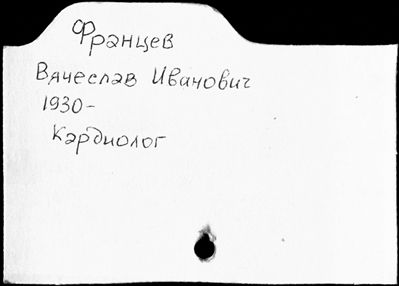 Францев
Вячеслав Иванович
1930-
Кардиолог